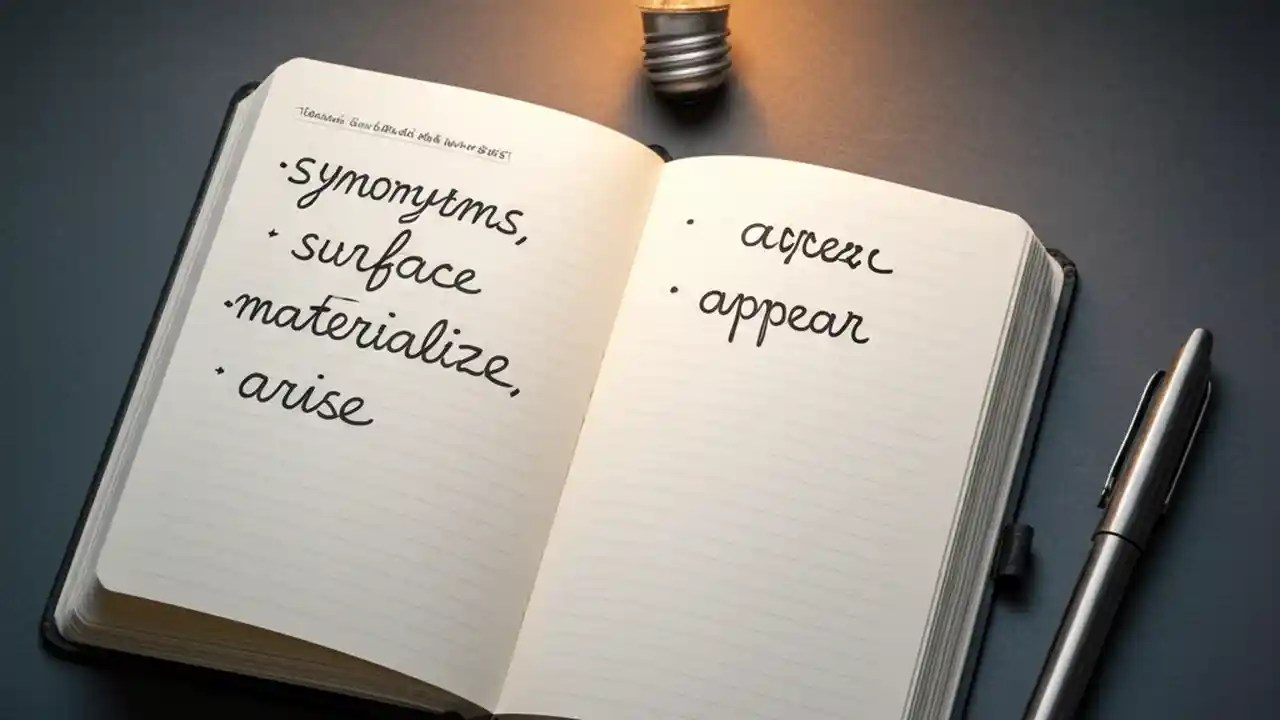 ·synonytms,
· surface
·materialize,
· arise
· appear